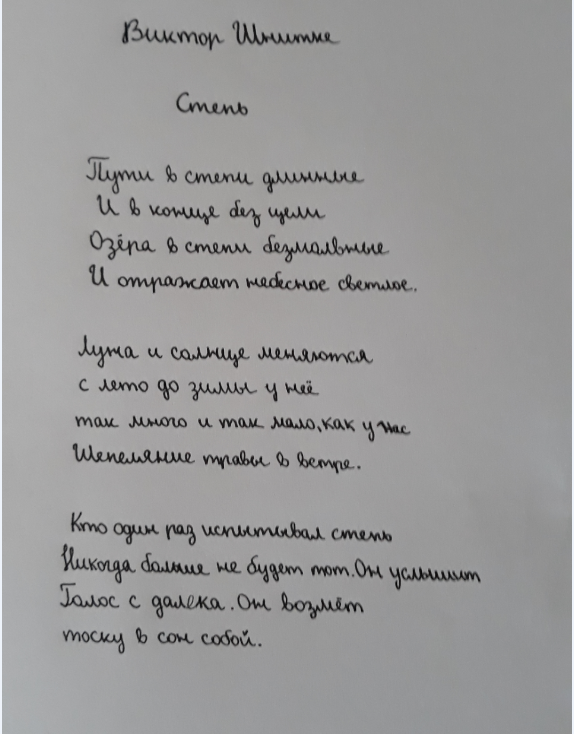 Виктор Шнитке
Степь
Пути в степи длинные
И в конце без цели
Озёра в степи безмалвные
И отражает небесное светлое.
Лужа и солнце меняются
с лето до зимы у неё
так много и так мало, как у нас
Шепемяние травы в ветре.
Кто один раз испытывал степь
Никогда больше не будет тот. Он услышит
Голос с далека. Он возмёт
тоску в сон собой.